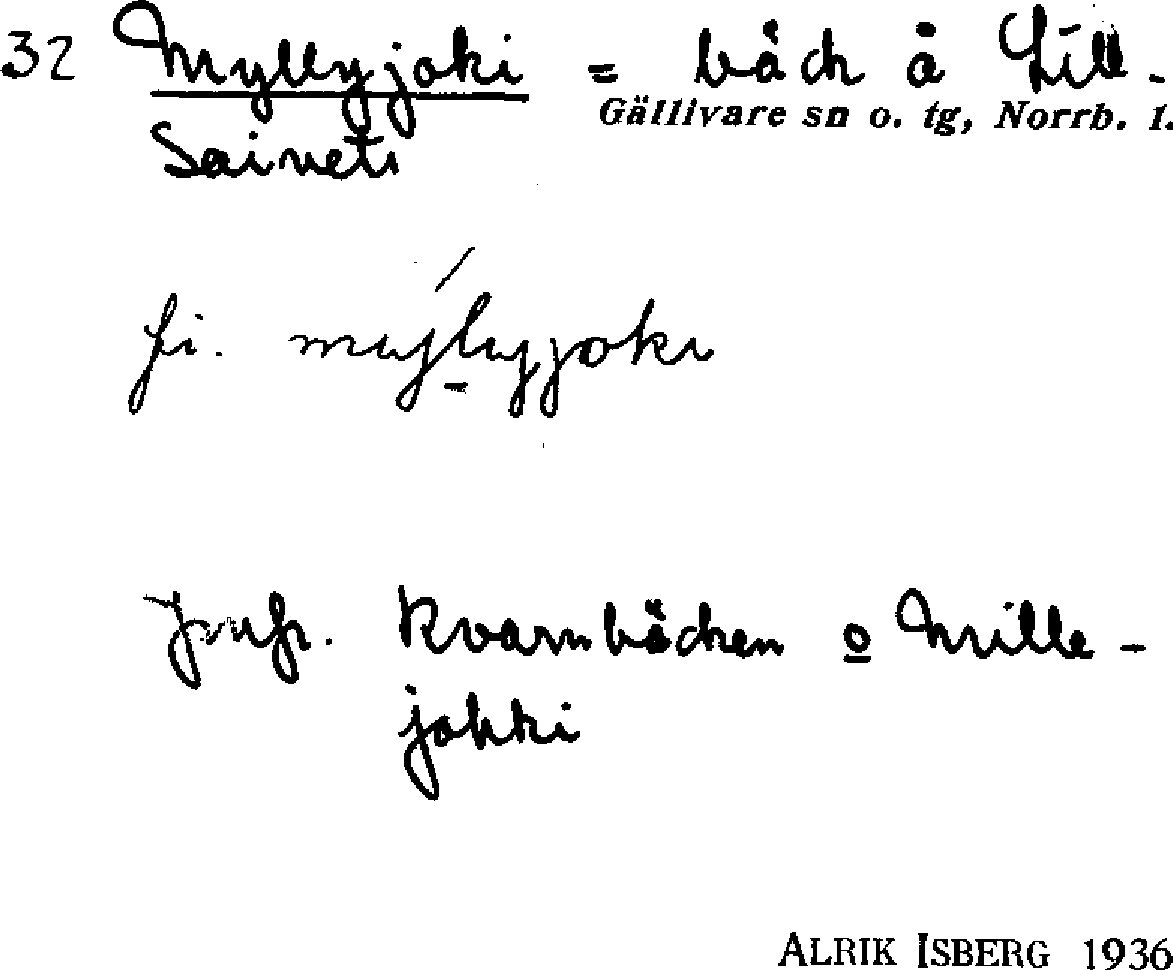 32 Myllyjoki = bäck å Lill-
Gällivare sn o. tg, Norrb. 1.
Saivets
fi. myl̠yjoki
Jmfr. Kvarnbäcken o Mille-
jokki
ALRIK ISBERG 1936